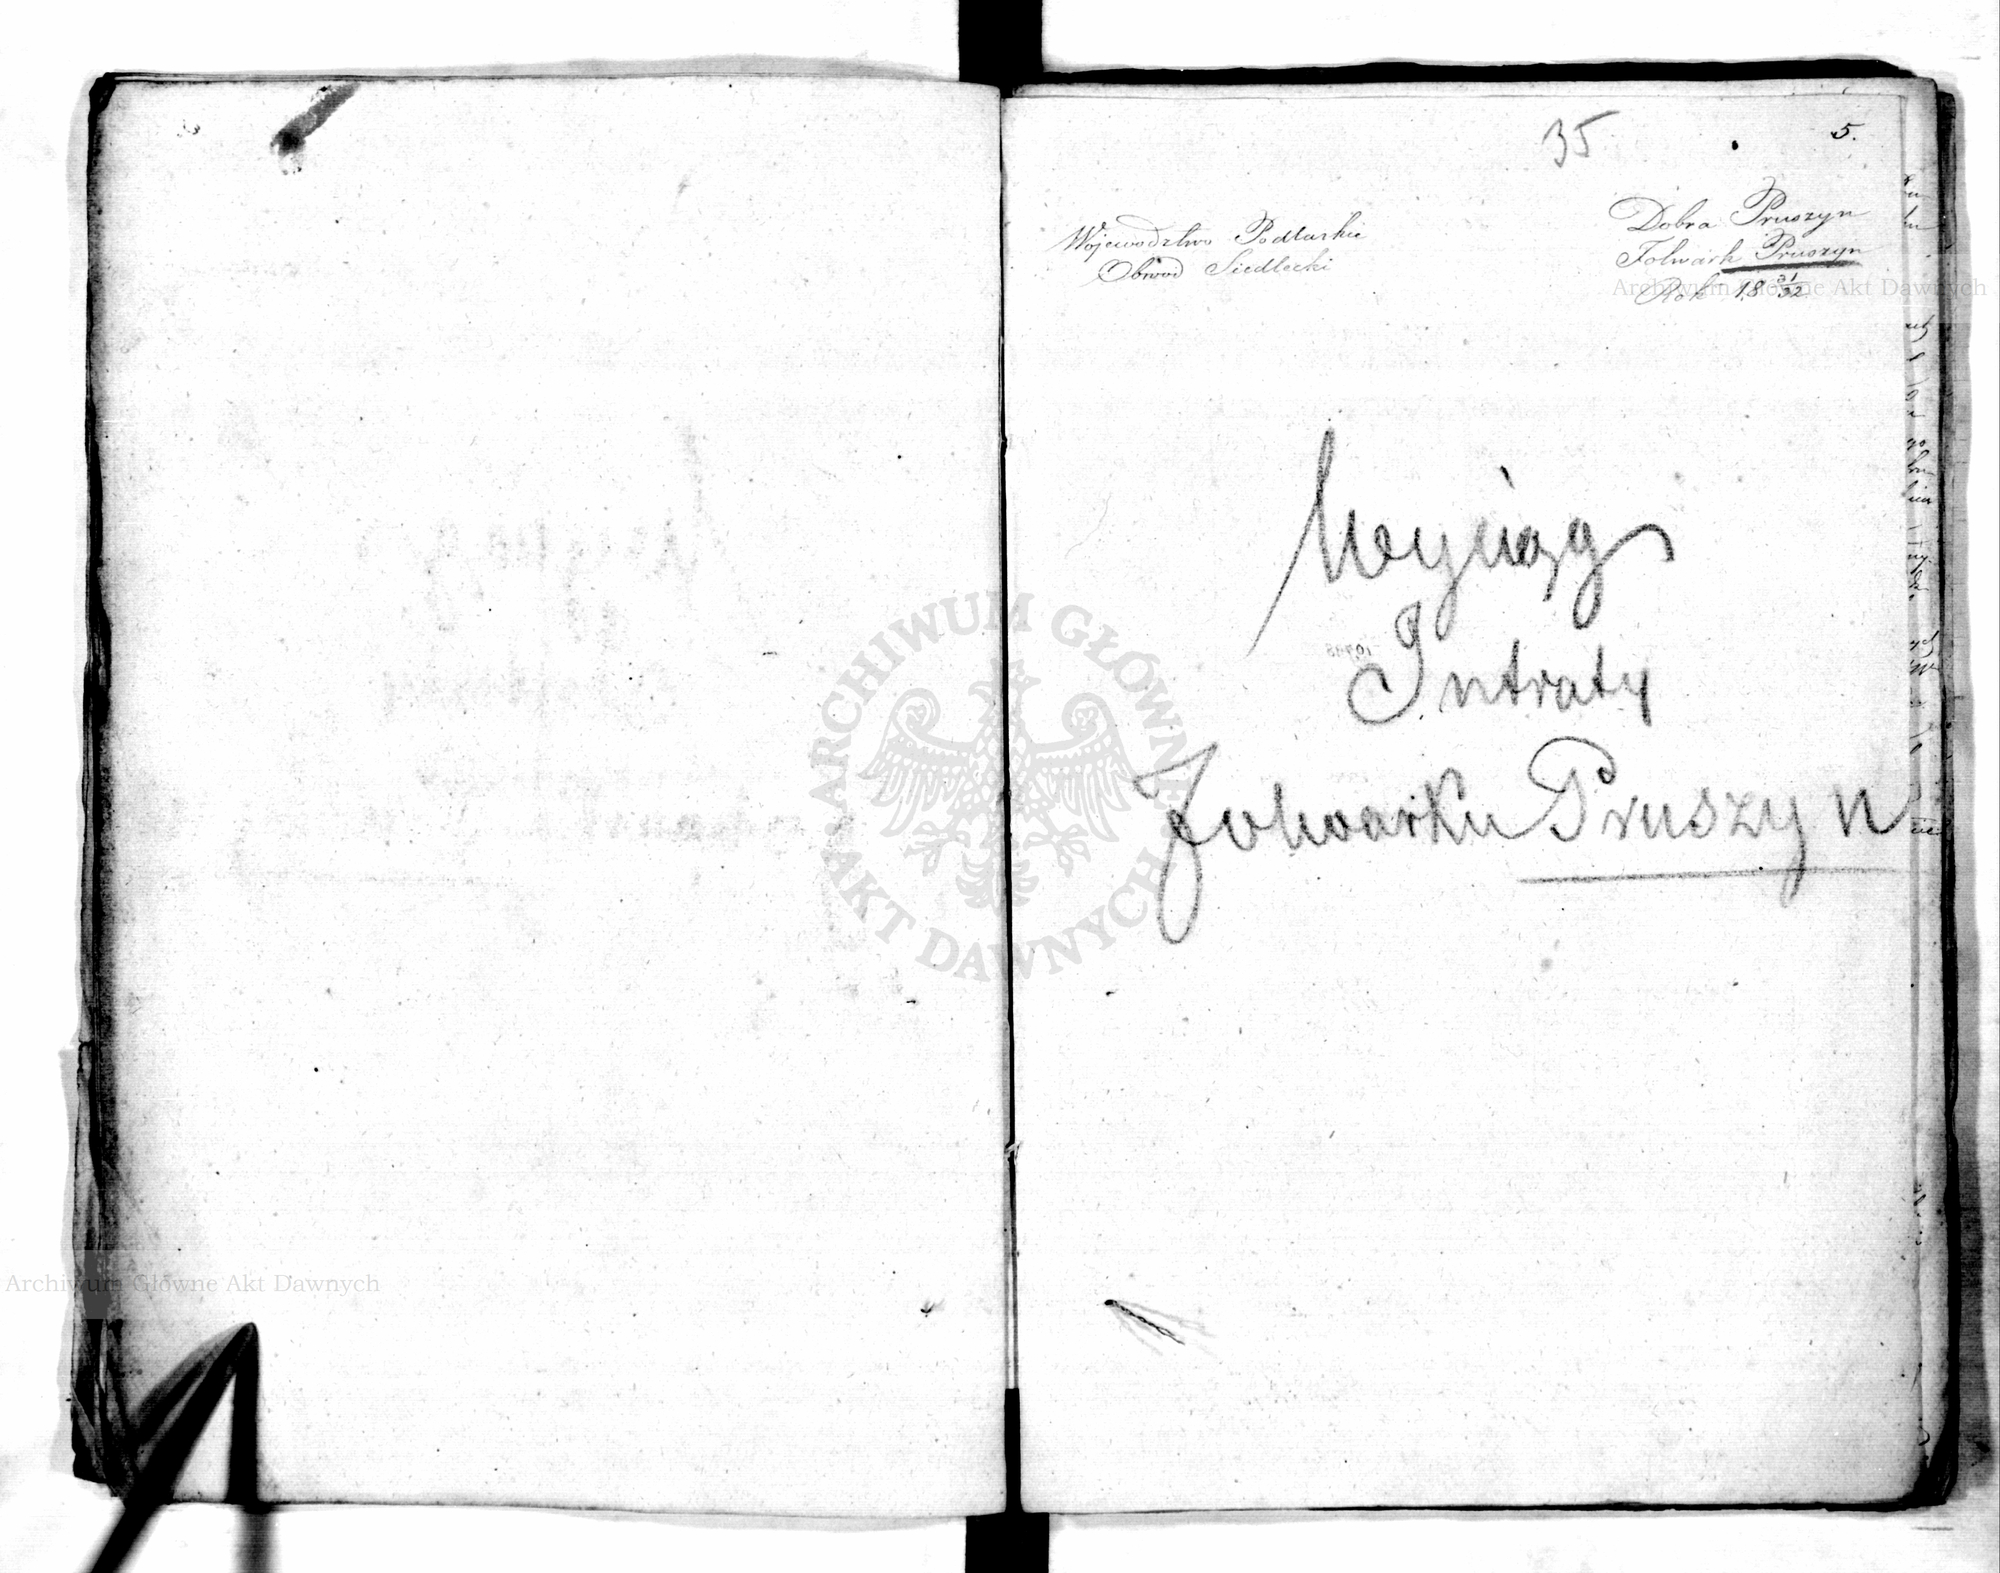 35
5.
Województwo Podlaskie
Obwód Siedlecki
Dobra Pruszyn
Folwark Pruszyn
Rok 18 31/32
Wyciąg
Intraty
Folwarku Pruszyn
ARCHIWUM GŁÓWNE AKT DAWNYCH
Archiwum Główne Akt Dawnych
Archiwum Główne Akt Dawnych